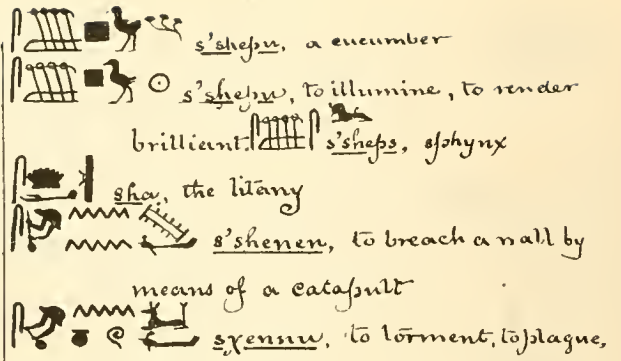 s'shepu, a cucumber
s'shepu, to illumine, to render
brilliant. s'sheps, sphynx
sha, the litany
s'shenen, to breach a wall by
means of a catapult
sχennu, to torment, to plague,